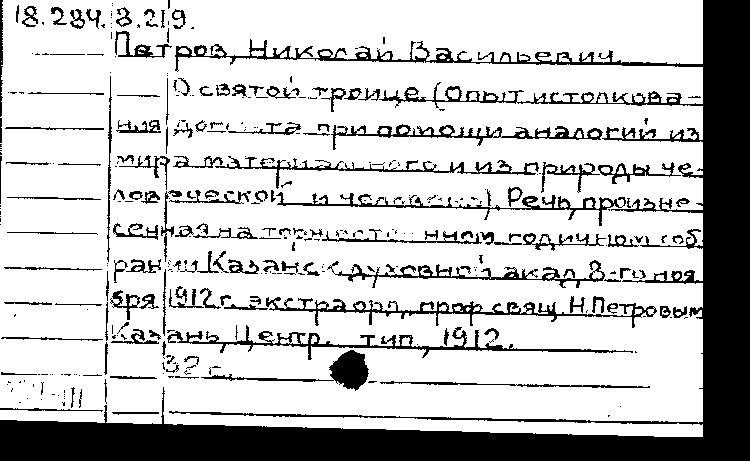 18.284.8.219.
Петров, Николай Васильевич.
О святой троице. (Опыт истолкова-
ния догмата при помощи аналогий из
мира материального и из природы че-
ловеческой и человека). Речь, произне-
сенная на торжественном годичном соб
рании Казанск. духовной акад. 8-го ноя
бря 1912 г. экстраорд. проф. свящ. Н. Петровым
Казань, Центр. тип., 1912.
32 с.